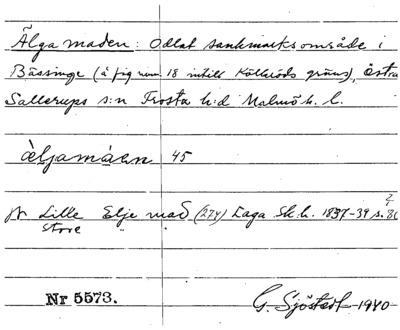 Älgamaden: Odlat sankmarksområde i
Bässinge (å fig num. 18 intill Källeröds gräns), Östra
Sallerups s:n Frosta h:d Malmöh. l.
àljamáen 45
jfr Lille Elje mad (274) Laga Sk.h. 1837-39 s.
Store "
Nr 5573.
G. Sjöstedt 1940